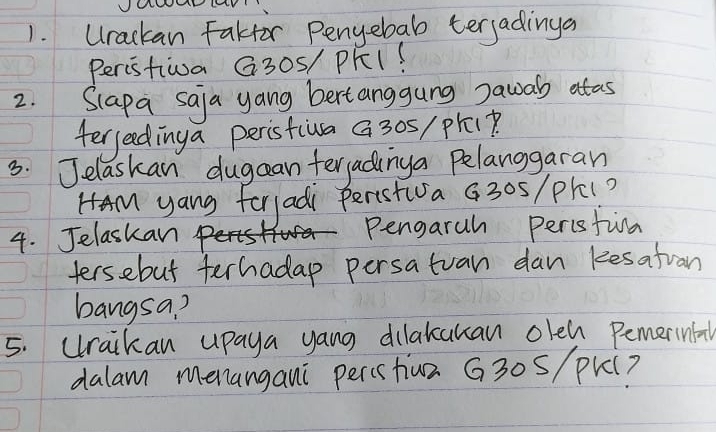 1. Uraikan Faktor Penyebab terjadinya
Peristiwa G30S/PKI!
2. Siapa saja yang bertanggung Jawab atas
terjadinya peristiwa G30S/PKI?
3. Jelaskan dugaan terjadinya Pelanggaran
HAM yang terjadi Peristiwa G30S/PKI?
4. Jelaskan Peristiwa Pengaruh Peristiwa
tersebut terhadap Persatuan dan Kesatuan
bangsa?
5. Uraikan upaya yang dilakukan oleh Pemerintah
dalam menangani peristiwa G30S/PKI?